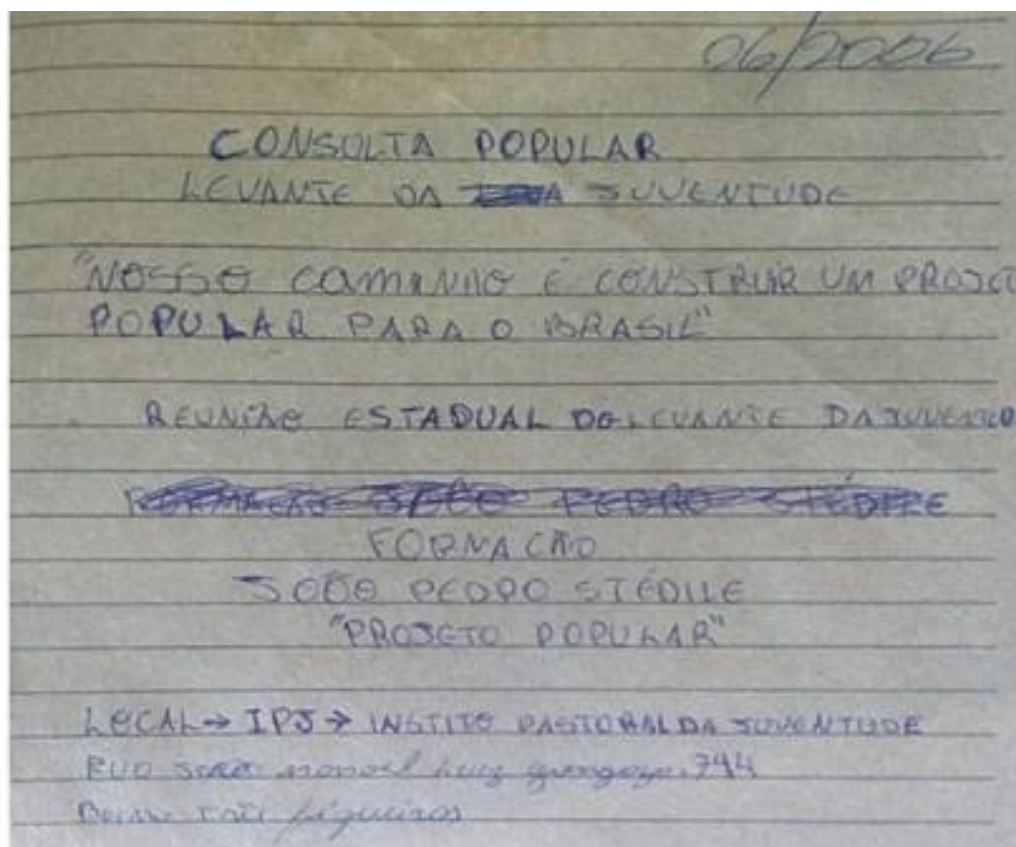 06/2006
CONSULTA POPULAR
LEVANTE DA JUVENTUDE
"NOSSO CAMINHO É CONSTRUIR UM PROJET
POPULAR PARA O BRASIL"
REUNIÃO ESTADUAL DO LEVANTE DA JUVENTUD
FORMAÇÃO JOÃO PEDRO STÉDILE
FORMAÇÃO
JOÃO PEDRO STÉDILE
"PROJETO POPULAR"
LOCAL → IPJ → INSTITO PASTORAL DA JUVENTUDE
744